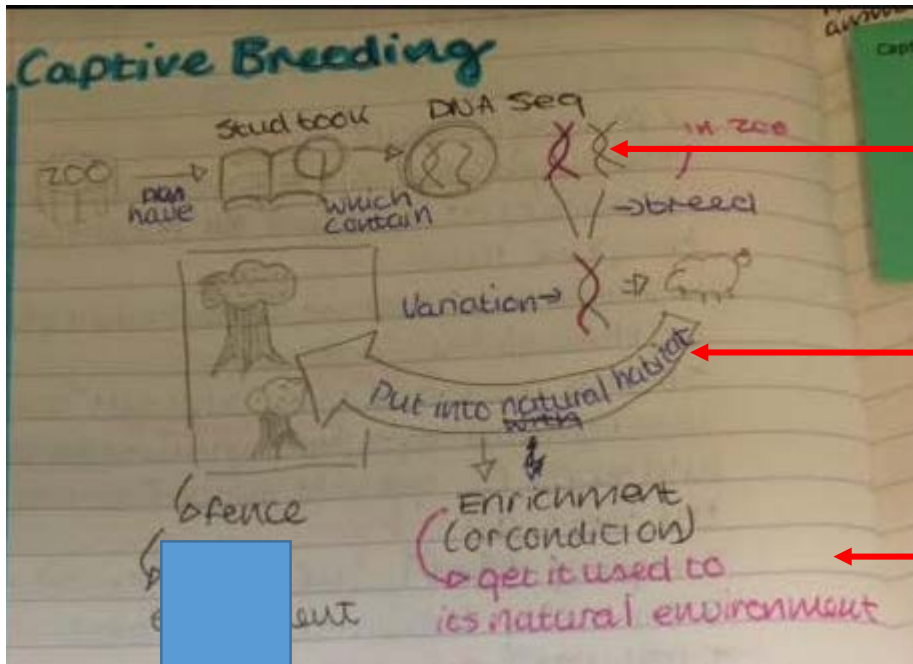 Captive Breeding
Stud book
DNA Seq
in zoo
ZOO
have
which
contain
→breed
Variation→
Put into natural habitat
with
fence
Enrichment
(or condition)
get it used to
its natural environment